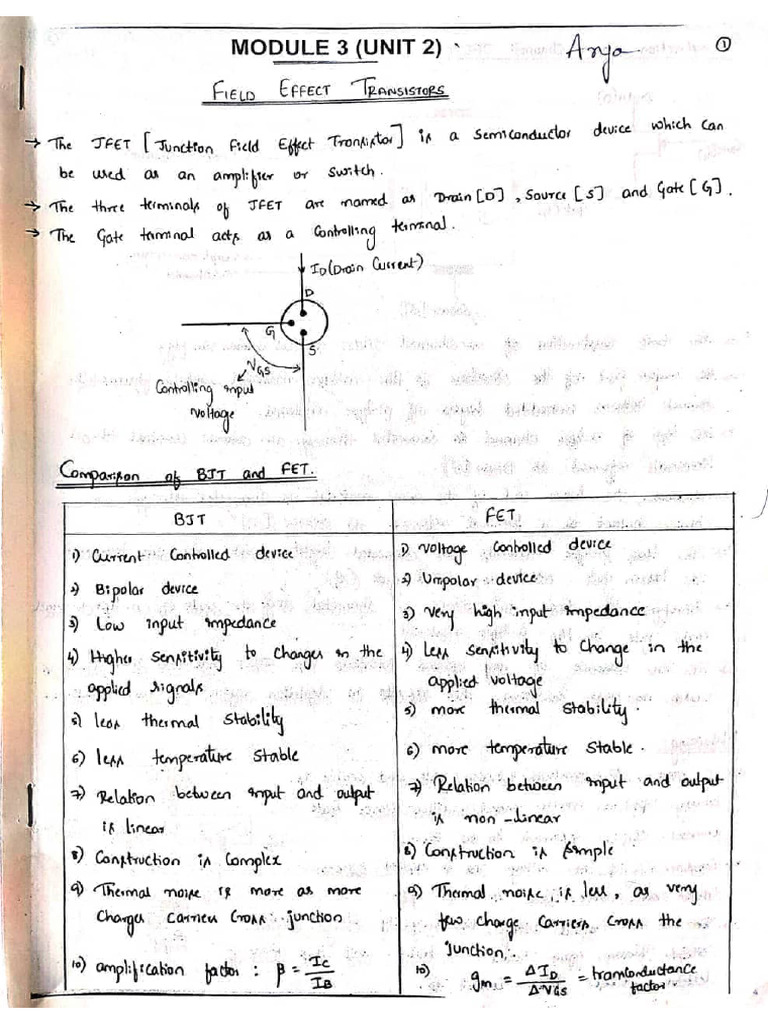 MODULE 3 (UNIT 2)
Arya
1
FIELD EFFECT TRANSISTORS
→ The JFET [Junction Field Effect Transistor] is a semiconductor device which can
be used as an amplifier or switch.
→ The three terminals of JFET are named as Drain [D], Source [S] and Gate [G].
→ The Gate terminal acts as a controlling terminal.
ID (Drain Current)
D
G
S
VGS
Controlling input
Voltage
Comparison of BJT and FET.
BJT
1) Current Controlled device
2) Bipolar device
3) Low input impedance
4) Higher sensitivity to changes in the
applied signals
5) less thermal stability
6) less temperature stable
7) Relation between input and output
is linear
8) Construction is Complex
9) Thermal noise is more as more
charges carriers cross junction
10) amplification factor : β = IC/IB
FET
1) Voltage controlled device
2) Unipolar device
3) very high input impedance
4) less sensitivity to change in the
applied voltage
5) more thermal stability.
6) more temperature stable.
7) Relation between input and output
is non-linear
8) Construction is simple
9) Thermal noise is less, as very
few charge carriers cross the
junction.
10) gm = ΔID/ΔVGS = transconductance
factor.